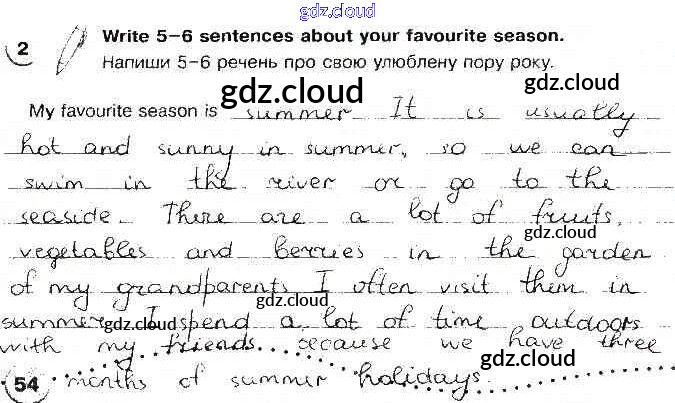 gdz.cloud
2 Write 5–6 sentences about your favourite season.
Напиши 5–6 речень про свою улюблену пору року.
gdz.cloud
gdz.cloud
My favourite season is summer It is usually
hot and sunny in summer, so we can
swim in the river or go to the
gdz.cloud
seaside. There are a lot of fruits,
gdz.cloud
vegetables and berries in the garden
of my grandparents I often visit them in
gdz.cloud
summer. I spend a lot of time outdoors
gdz.cloud
with my friends because we have three
gdz.cloud
54 months of summer holidays.